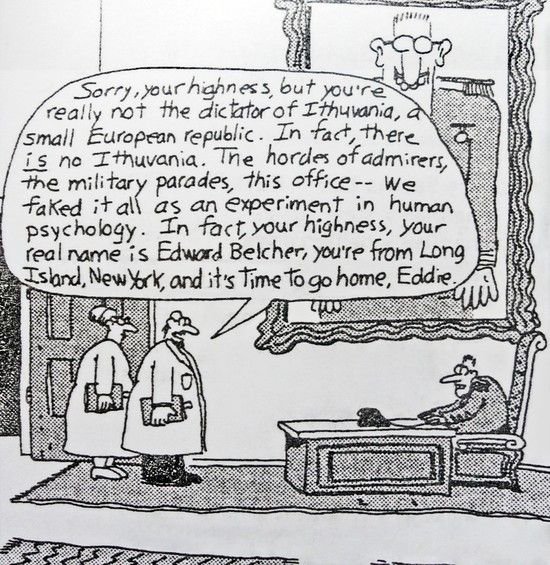 Sorry, your highness, but you're
really not the dictator of Ithuvania, a
small European republic. In fact, there
is no Ithuvania. The hordes of admirers,
the military parades, this office-- we
faked it all as an experiment in human
psychology. In fact, your highness, your
real name is Edward Belcher, you're from Long
Island, New York, and it's time to go home, Eddie.